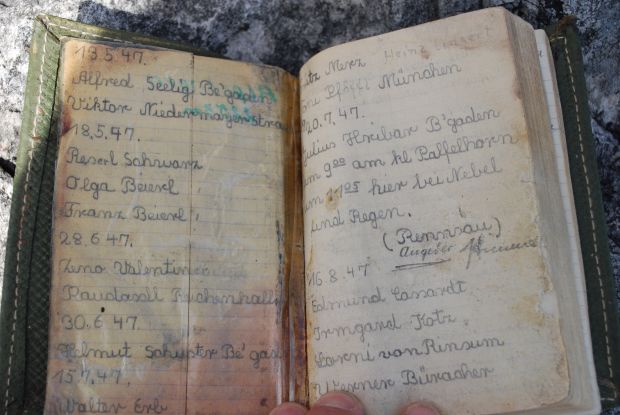 18.5.47.
Alfred Seelig B'gaden
Viktor Niedermayer
18.5.47.
Reserl Schwarz
Olga Beierl "
Franz Beierl "
28.6 47.
Zeno Valentini
Raudaschl Reichenhall
30.6 47.
Helmut Schuster B'gad
15.7.47,
Walter Erb
Merz Heinz
Pföffl München
20.7.47.
Julius Hribar B'gaden
um 9⁰⁰ am kl Palfelhorn
um 11²⁵ hier bei Nebel
und Regen.
(Rennsau)
August
16.8.47
Edmund Cassardt
Irmgard Kotz
Lorni von Rinsum
Werner Büracher